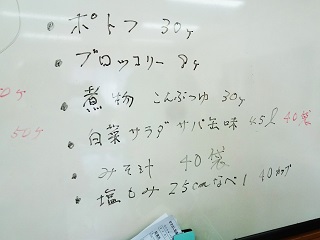 ・ポトフ 30g
・ブロッコリー 8g
・煮物 こんぶつゆ 30g
50g
・白菜サラダ サバ缶味 4.5ℓ 40袋
・みそ汁 40袋
・塩もみ 25cmなべ1 40カップ